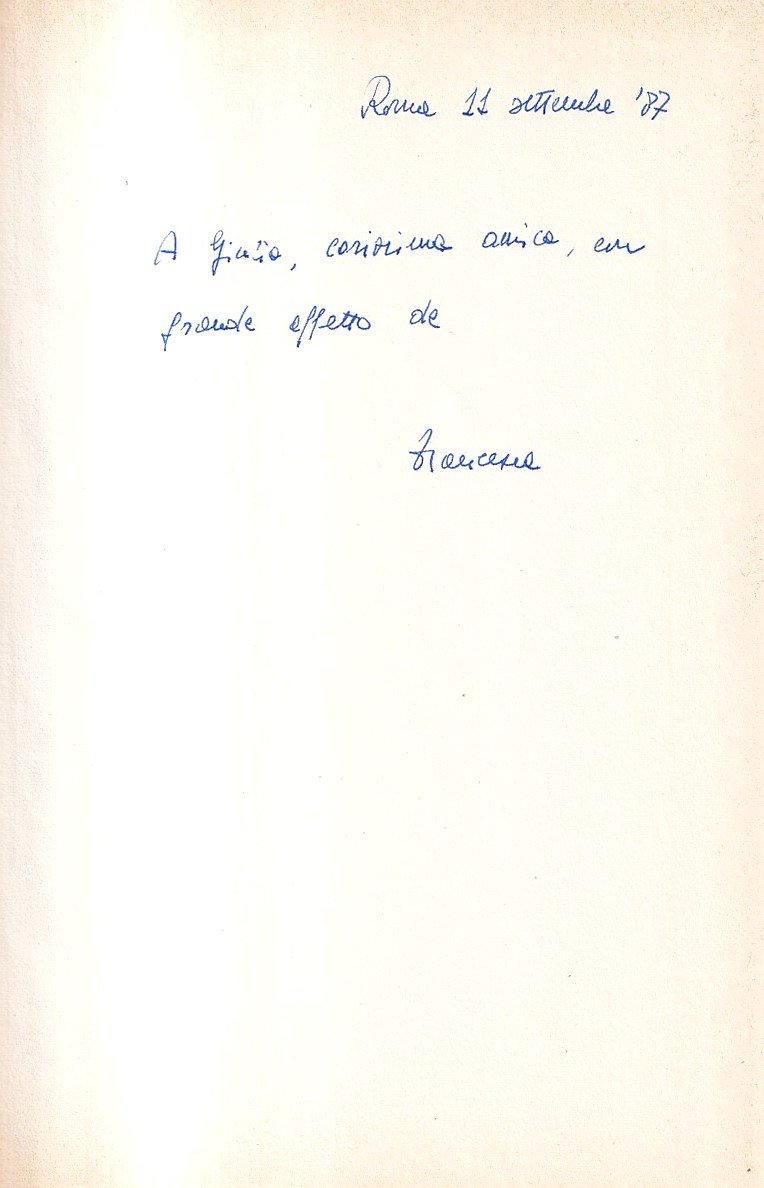 Roma 11 settembre '87
A Giulia, carissima amica, con
grande affetto da
Francesca